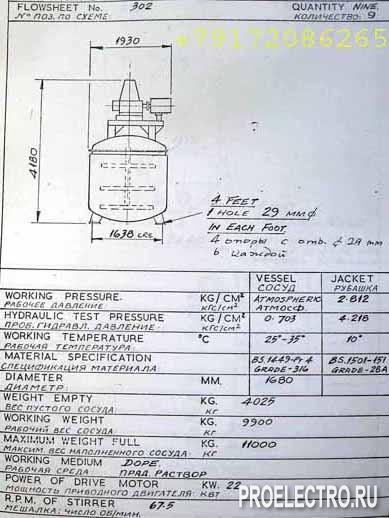 FLOWSHEET No. 302 QUANTITY NINE.
№ ПОЗ. ПО СХЕМЕ КОЛИЧЕСТВО: 9
+79172086265
1930
4180
1638 CRS
4 FEET
1 HOLE 29 MMϕ
IN EACH FOOT
4 опоры с отв. ϕ 29 мм
в каждой
VESSEL JACKET
СОСУД РУБАШКА
WORKING PRESSURE. KG/CM² ATMOSPHERIC 2·812
РАБОЧЕЕ ДАВЛЕНИЕ: КГС/СМ² АТМОСФ.
HYDRAULIC TEST PRESSURE KG/CM² 0·703 4.218
ПРОБ. ГИДРАВЛ. ДАВЛЕНИЕ: КГС/СМ²
WORKING TEMPERATURE °C 25°-35° 10°
РАБОЧАЯ ТЕМПЕРАТУРА:
MATERIAL SPECIFICATION BS.1449-Pt 4 BS.1501-151
СПЕЦИФИКАЦИЯ МАТЕРИАЛА: GRADE-316 GRADE-28A
DIAMETER MM. 1680
ДИАМЕТР:
WEIGHT EMPTY KG. 4025
ВЕС ПУСТОГО СОСУДА: КГ
WORKING WEIGHT KG. 9900
РАБОЧИЙ ВЕС СОСУДА: КГ
MAXIMUM WEIGHT FULL KG. 11000
МАКСИМ. ВЕС НАПОЛНЕННОГО СОСУДА: КГ
WORKING MEDIUM DOPE.
РАБОЧАЯ СРЕДА ПРЯД. РАСТВОР
POWER OF DRIVE MOTOR KW. 22
МОЩНОСТЬ ПРИВОДНОГО ДВИГАТЕЛЯ: КВТ
R.P.M. OF STIRRER 67.5
МЕШАЛКА: ЧИСЛО ОБ/МИН.
PROELECTRO.RU